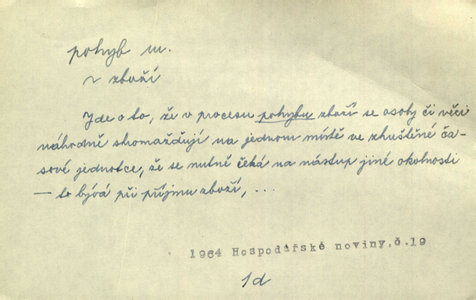 pohyb m.
~ zboží
Jde o to, že v procesu pohybu zboží se osoby či věci
náhodně shromažďují na jednom místě ve zhuštěné ča-
sové jednotce, že se nutně čeká na nástup jiné okolnosti
— to bývá při příjmu zboží, ...
1964 Hospodářské noviny,č.19
1d